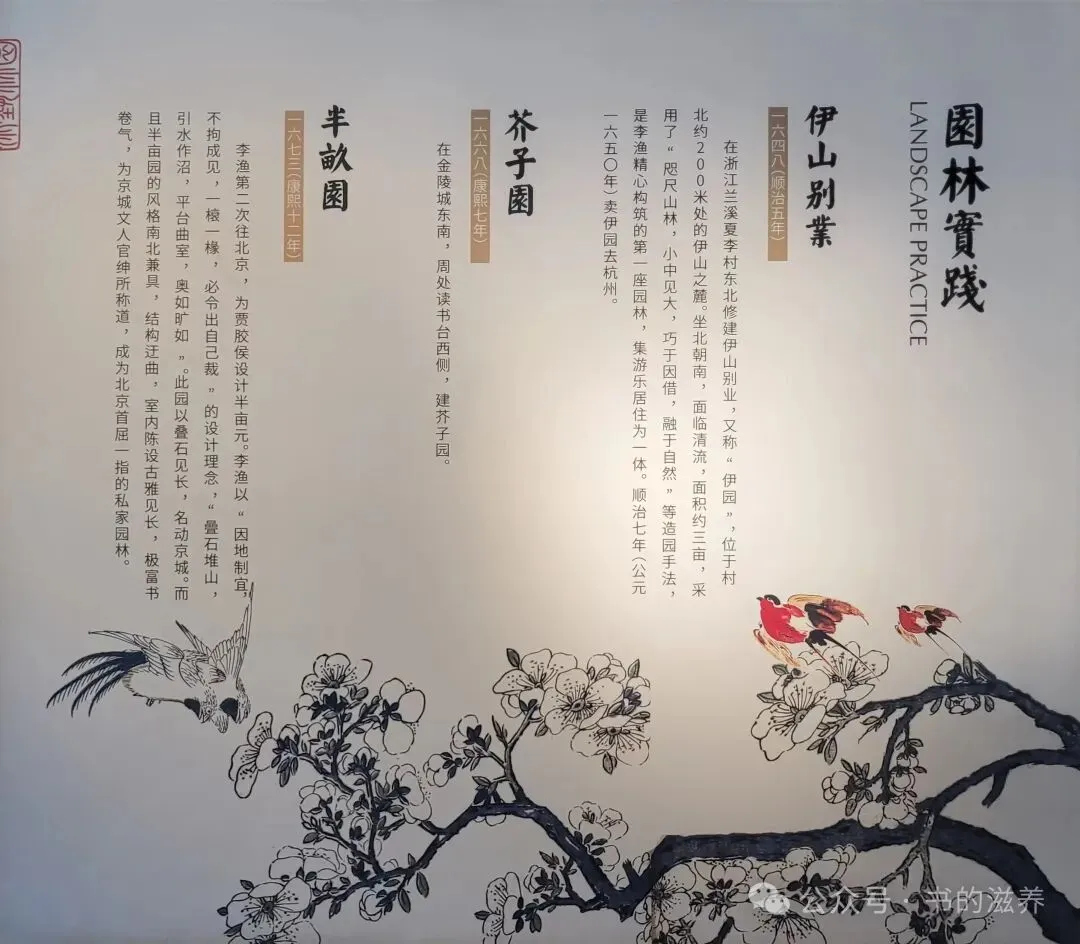 園林實踐
LANDSCAPE PRACTICE
伊山别業
一六四八(顺治五年)
在浙江兰溪夏李村东北修建伊山别业，又称“伊园”，位于村
北约200米处的伊山之麓。坐北朝南，面临清流，面积约三亩，采
用了“咫尺山林，小中见大，巧于因借，融于自然”等造园手法，
是李渔精心构筑的第一座园林，集游乐居住为一体。顺治七年(公元
一六五〇年)卖伊园去杭州。
芥子園
一六六八(康熙七年)
在金陵城东南，周处读书台西侧，建芥子园。
半畝園
一六七三(康熙十二年)
李渔第二次往北京，为贾胶侯设计半亩元。李渔以“因地制宜，
不拘成见，一榱一椽，必令出自己裁”的设计理念，“疊石堆山，
引水作沼，平台曲室，奥如旷如”。此园以叠石见长，名动京城。而
且半亩园的风格南北兼具，结构迂曲，室内陈设古雅见长，极富书
卷气，为京城文人官绅所称道，成为北京首屈一指的私家园林。
公众号·书的滋养